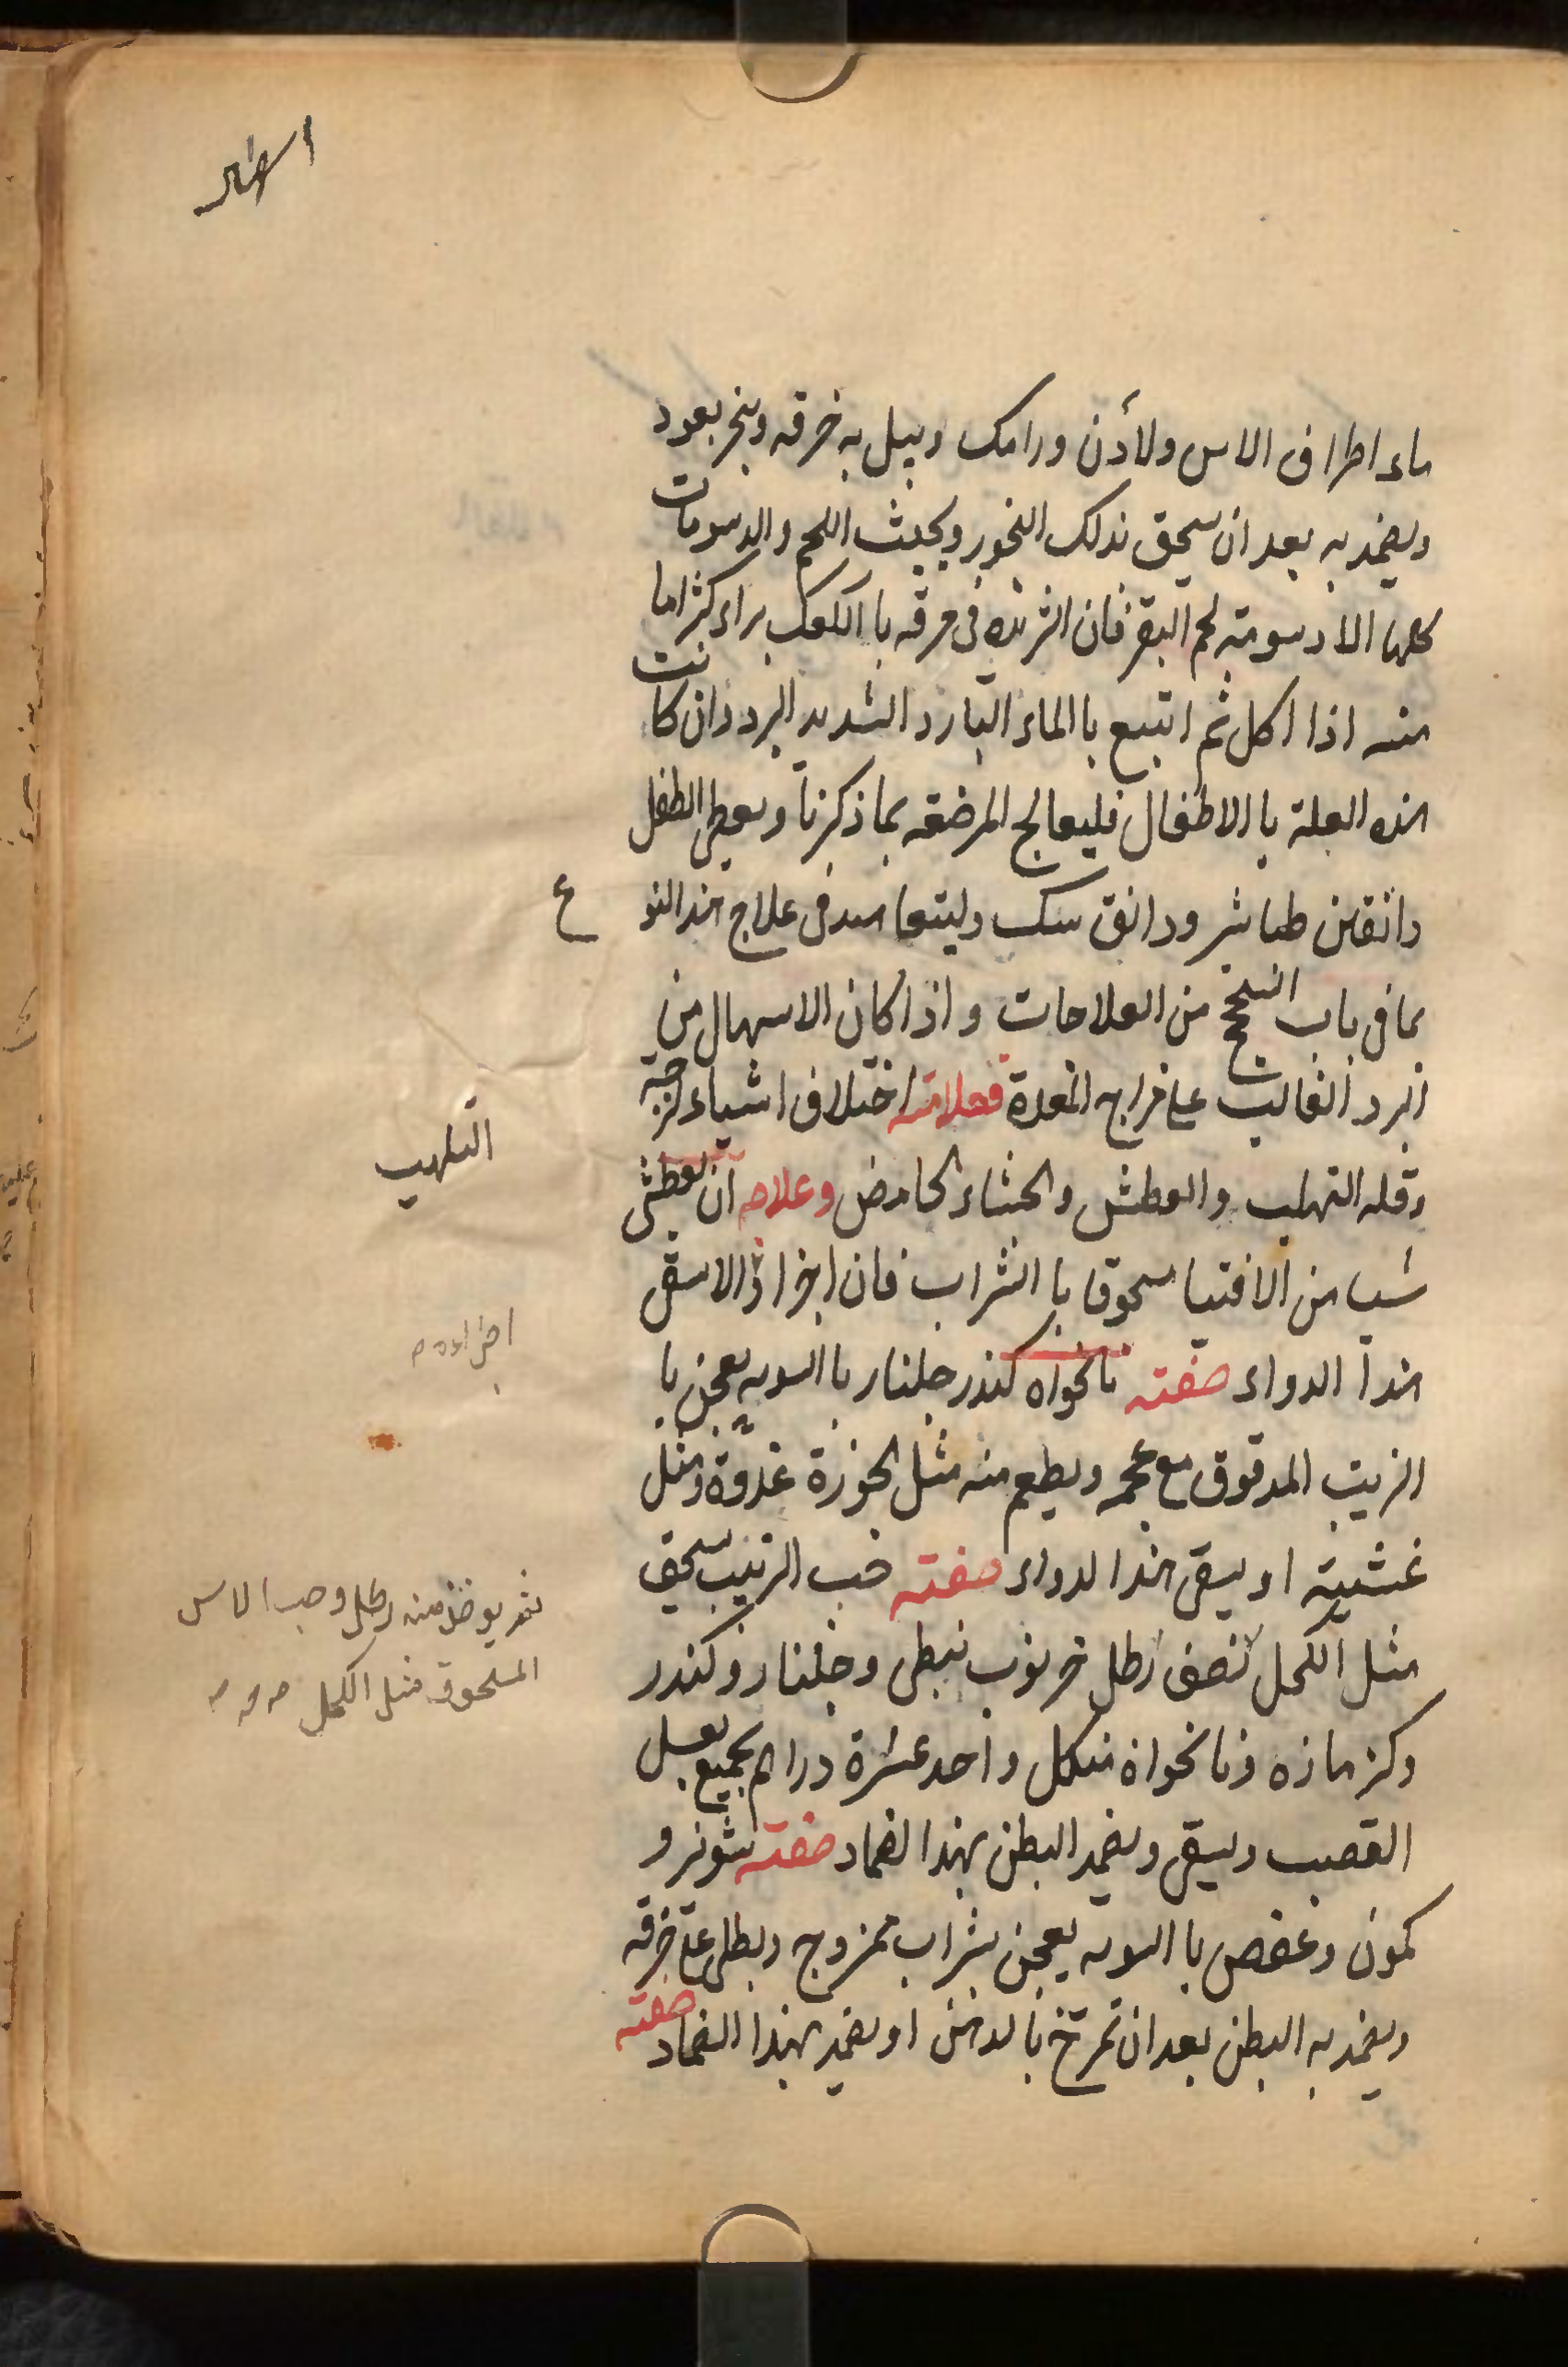 اسهال
ماء اطراف الاس ولاذن ورامك ويبل به خرقه وبنحر بعود
ويضمد به بعد ان يسحق بذلك البخور ويجنب اللحم والدسومات
كلها الا دسومته لحم البقر فان الثريده فى مرقه با الكعك براء كثيراما
منه اذا اكل ثم اتبع با الماء البارد الشديد البرد وان كانت
هذه العلة با الاطفال فليعالج المرضعه بما ذكرنا ويعطى الطفل
دانقين طباشر ودانق سك وليتعاهد فى علاج هذ النوع
بما فى باب السحج من العلاجات واذا كان الاسهال من
البرد الغالب على مزاج المعدة فعلامته اختلاف اشياء لزجة
وقله التهليب والعطش والجشاء الحامض وعلاجه ان يعطى
التلهيب
شيا من الاقتيا مسحوقا با الشراب فان اجزا والا سقى
اجزاءه م
هذا الدواء صفته نانخواه كندر جلنار با السويه يعجن با
الزبيب المدقوق مع عجمه ويطعم منه مثل الجوزة غدوة ومثل
عشيته او يسقى هذا لدواء صفته حب الزبيب يسحق
مثل الكحل نصف رطل خرنوب نبطى وجلنار وكندر
ثم يوخذ منه رطل وحب الاس
المسحوق مثل الكحل
وكزمازه ونانخواه منكل واحد عشرة دراهم يجمع بعسل
القصب ويسقى ويضمد البطن بهذا لضماد صفته شونيز و
كمون وعفص با السويه يعجن بشراب ممزوج ويطلى على خرقه
ويضمد به البطن بعد ان تمرخ با لدهن او يضمد بهذا الضماد صفته